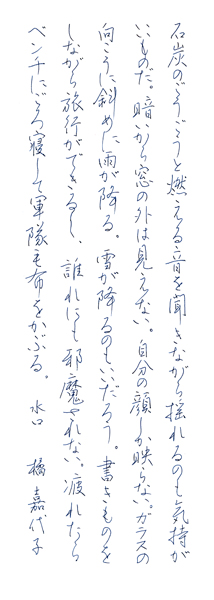 石炭のごうごうと燃える音を聞きながら揺れるのも気持が
いいものだ。暗いから窓の外は見えない。自分の顔しか映らない。ガラスの
向こうに斜めに雨が降る。雪が降るのもいいだろう。書きものを
しながら旅行ができるし、誰れにも邪魔されない。疲れたら
ベンチにごろ寝して軍隊毛布をかぶる。 水口 橘 嘉代子